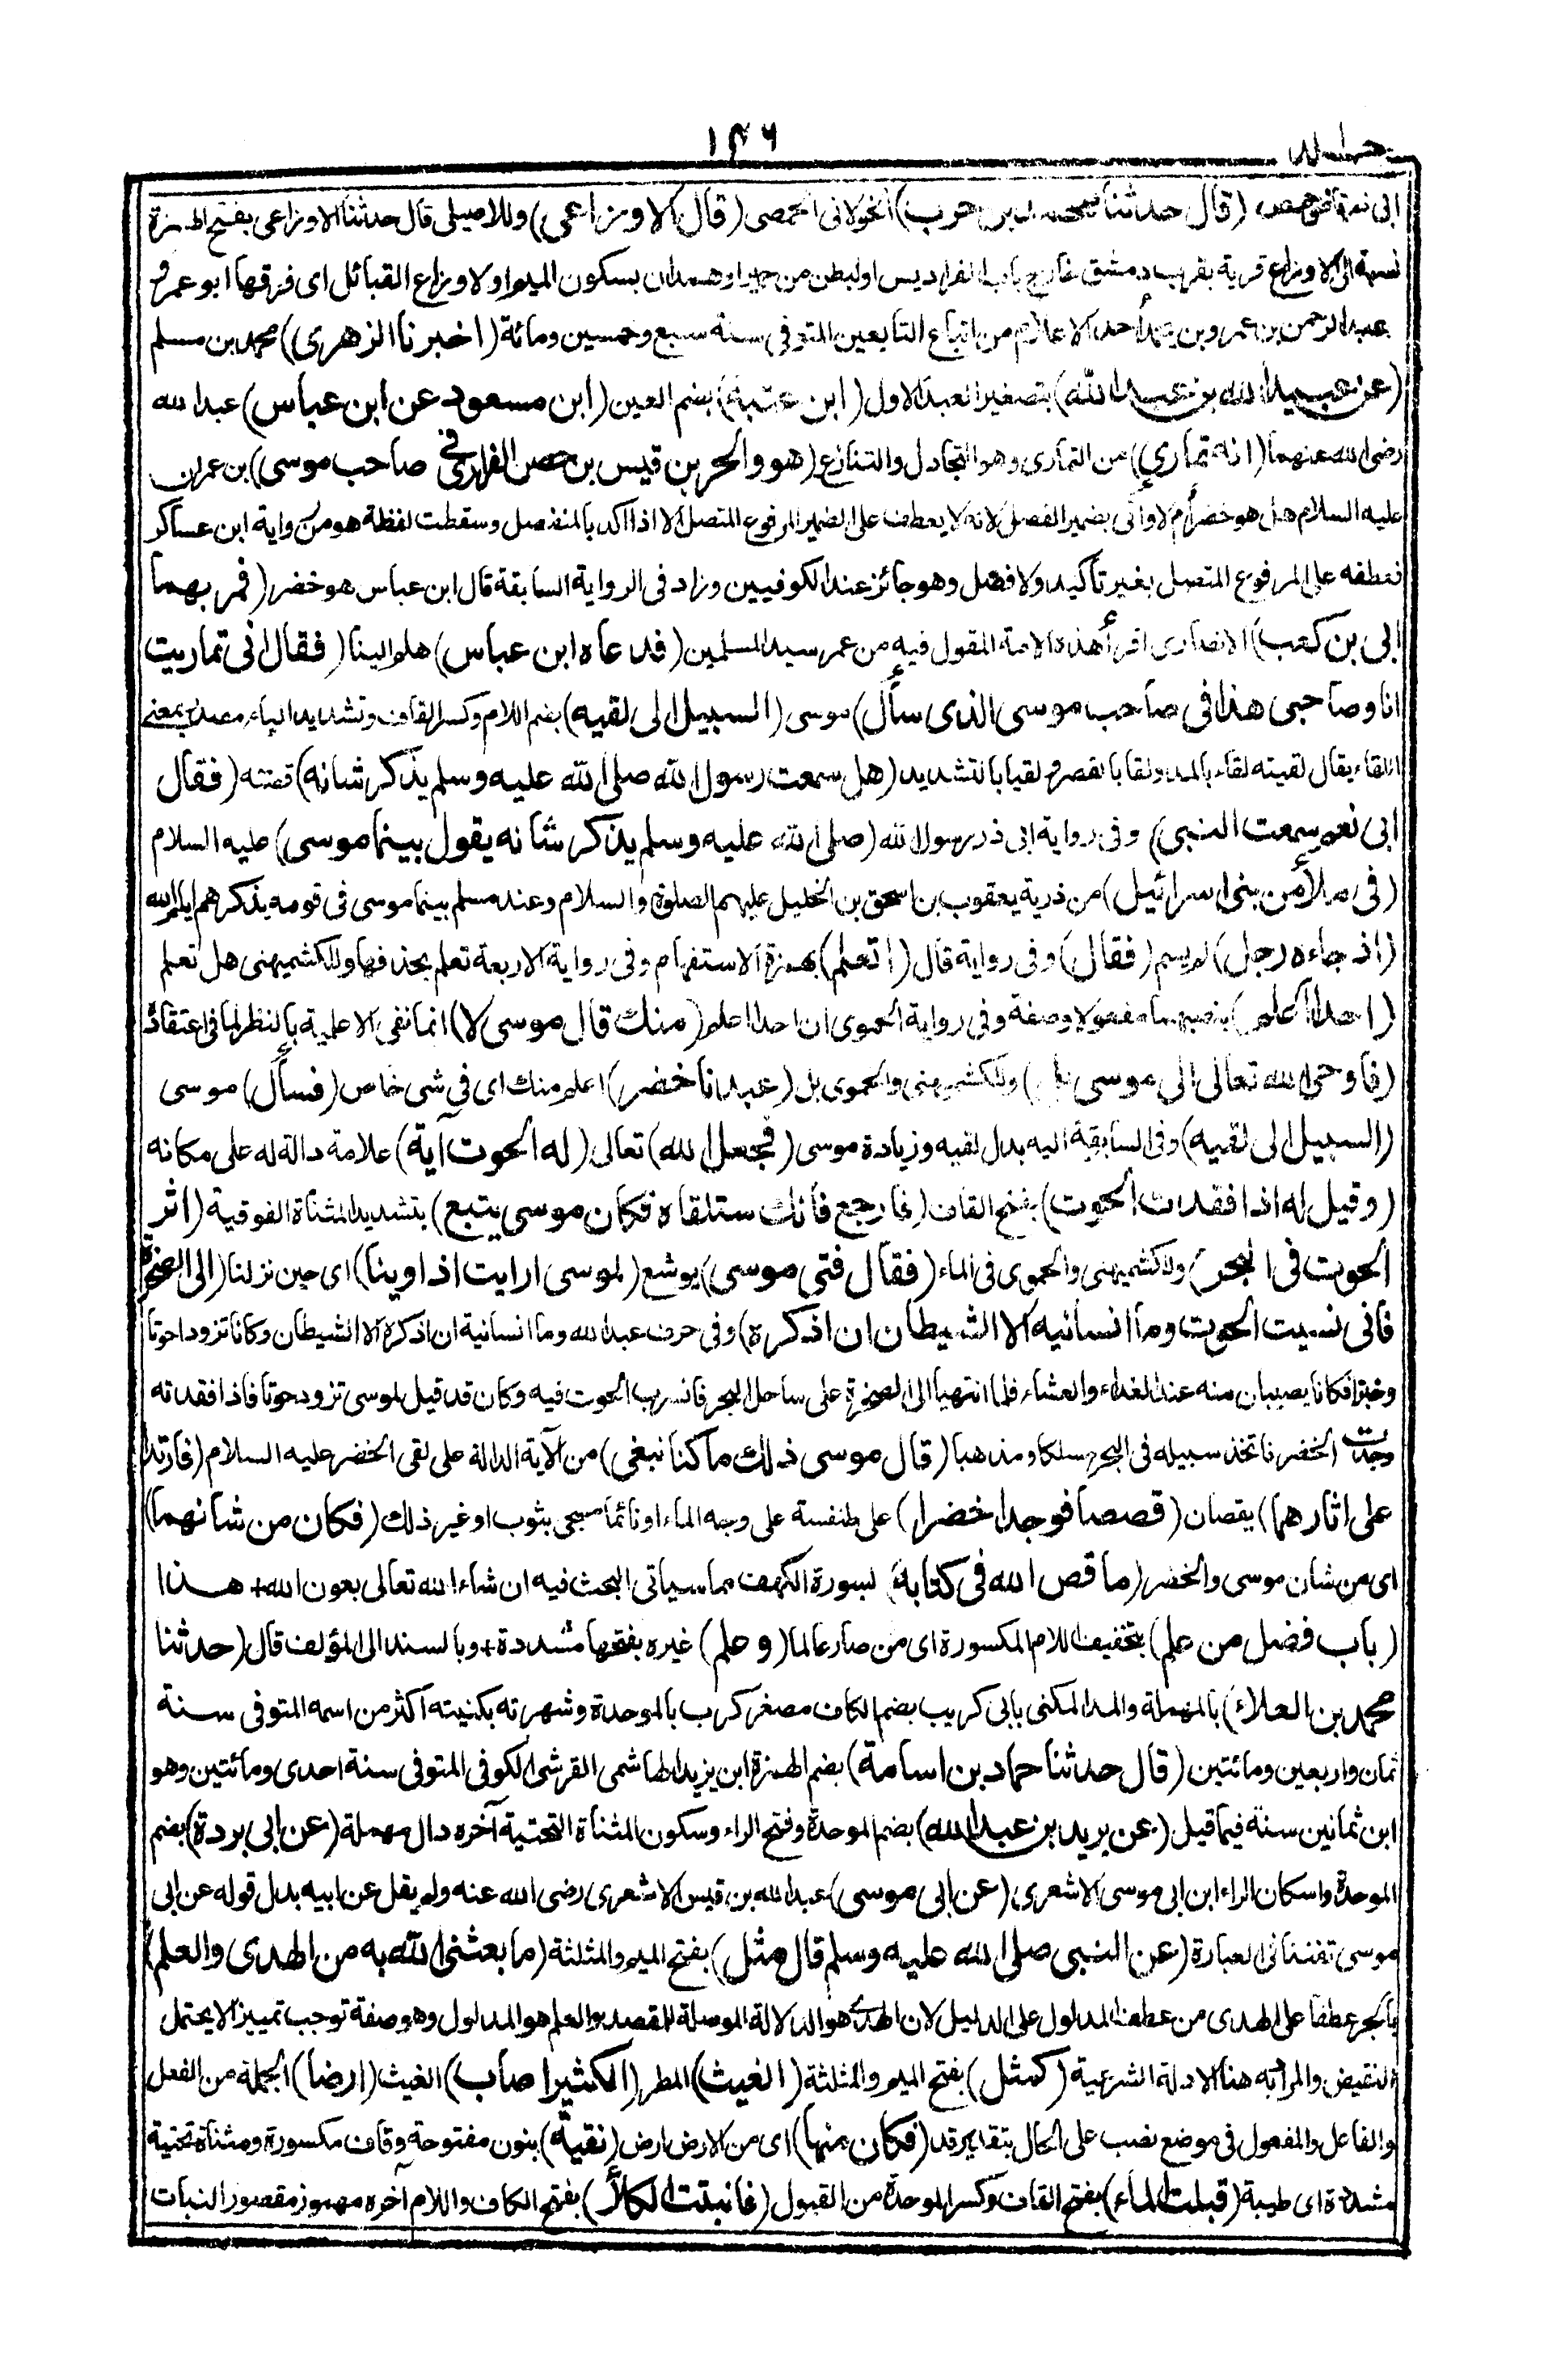 ١٣٦
(قال حدثنا محمد بن حرب) الخولانى الحمصى (قال الاوزاعى) وللاصيلى قال حدثنا الاوزاعى بفتح الهمزة
نسبة الى الاوزاع قرية بقرب دمشق خارج باب الفراديس او لبطن من حمير او همدان بسكون الميم او لاوزاع القبائل اى فرقها ابو عمرو
عبد الرحمن بن عمرو بن يحمد احد الاعلام من اتباع التابعين المتوفى سنة سبع وخمسين ومائة (اخبرنا الزهرى) محمد بن مسلم
(عن عبيد الله بن عبد الله) بتصغير العبد الاول (ابن عتبة) بضم العين (ابن مسعود عن ابن عباس) عبد الله
رضى الله عنهما (انه تمارى) من التمارى وهو التجادل والتنازع (هو والحر بن قيس بن حصن الفزارى فى صاحب موسى) بن عمران
عليه السلام هل هو خضر أم لا وأتى بضمير الفصل لانه لا يعطف على الضمير المرفوع المتصل الا اذا اكد بالمنفصل وسقطت لفظة هو من رواية ابن عساكر
فعطفه على المرفوع المتصل بغير تأكيد ولا فصل وهو جائز عند الكوفيين وزاد فى الرواية السابقة قال ابن عباس هو خضر (فمر بهما
ابى بن كعب) الانصارى اقرأ هذه الامة المقول فيه من عمر سيد المسلمين (فدعاه ابن عباس) هلم الينا (فقال انى تماريت
انا وصاحبى هذا فى صاحب موسى الذى سأل) موسى (السبيل الى لقيه) بضم اللام وكسر القاف وتشديد الياء مصدر بمعنى
اللقاء يقال لقيته لقاء بالمد ولقا بالقصر ولقيا بالتشديد (هل سمعت رسول الله صلى الله عليه وسلم يذكر شانه) قصته (فقال
ابى نعم سمعت النبى) وفى رواية ابى ذر رسول الله (صلى الله عليه وسلم يذكر شانه يقول بينما موسى) عليه السلام
(فى ملأ من بنى اسرائيل) من ذرية يعقوب بن اسحق بن الخليل عليهم الصلوة والسلام وعند مسلم بينما موسى فى قومه يذكرهم ايام الله
(اذ جاءه رجل) لم يسم (فقال) وفى رواية قال (اتعلم) بهمزة الاستفهام وفى رواية الاربعة تعلم بحذفها وللكشميهنى هل تعلم
(احدا أعلم) بنصبهما مفعولا وصفة وفى رواية الحموى ان احدا اعلم (منك قال موسى لا) انما نفى الاعلمية بالنظر لما فى اعتقاده
(فاوحى الله تعالى الى موسى بلى) وللكشميهنى والحموى بل (عبدنا خضر) اعلم منك اى فى شى خاص (فسأل) موسى
(السبيل الى لقيه) وفى السابقة اليه بدل لقيه وزيادة موسى (فجعل الله) تعالى (له الحوت آية) علامة دالة له على مكانه
(وقيل له اذا فقدت الحوت) بفتح القاف (فارجع فانك ستلقاه فكان موسى يتبع) بتشديد المثناة الفوقية (اثر
الحوت فى البحر) وللكشميهنى والحموى فى الماء (فقال فتى موسى) يوشع (لموسى ارايت اذ اوينا) اى حين نزلنا (الى الصخرة
فانى نسيت الحوت وما انسانيه الا الشيطان ان اذكره) وفى حرف عبد الله وما انسانية ان اذكره الا الشيطان وكانا تزودا حوتا
وخبزا فكانا يصيبان منه عند الغداء والعشاء فلما انتهيا الى الصخرة على ساحل البحر فانسرب الحوت فيه وكان قد قيل لموسى تزود حوتا فاذا فقدته
وجدت الخضر فاتخذ سبيله فى البحر مسلكا ومذهبا (قال موسى ذلك ما كنا نبغى) من الآية الدالة على لقى الخضر عليه السلام (فارتدا
على اثارهما) يقصان (قصصا فوجدا خضرا) على طنفسة على وجه الماء او نائما مسجى بثوب او غير ذلك (فكان من شانهما)
اى من شان موسى والخضر (ما قص الله فى كتابه) لسورة الكهف مما سياتى البحث فيه ان شاء الله تعالى بعون الله+ هذا
(باب فضل من علم) بتخفيف اللام المكسورة اى من صار عالما (وعلم) غيره بفتحها مشددة+ وبالسند الى المؤلف قال (حدثنا
محمد بن العلاء) بالمهملة والمد المكنى بابى كريب بضم الكاف مصغر كرب بالموحدة وشهرته بكنيته اكثر من اسمه المتوفى سنة
ثمان واربعين ومائتين (قال حدثنا حماد بن اسامة) بضم الهمزة ابن يزيد الهاشمى القرشى الكوفى المتوفى سنة احدى ومائتين وهو
ابن ثمانين سنة فيما قيل (عن بريد بن عبد الله) بضم الموحدة وفتح الراء وسكون المثناة التحتية آخره دال مهملة (عن ابى بردة) بضم
الموحدة واسكان الراء ابن ابى موسى الاشعرى (عن ابى موسى) عبد الله بن قيس الاشعرى رضى الله عنه ولم يقل عن ابيه بدل قوله عن ابى
موسى تفننا فى العبارة (عن النبى صلى الله عليه وسلم قال مثل) بفتح الميم والمثلثة (ما بعثنى الله به من الهدى والعلم)
بالجر عطفا على الهدى من عطف المدلول على الدليل لان الهدى هو الدلالة الموصلة للمقصد والعلم هو المدلول وهو صفة توجب تمييزا لا يحتمل
النقيض والمراد به هنا الادلة الشرعية (كمثل) بفتح الميم والمثلثة (الغيث) المطر (الكثير اصاب) الغيث (ارضا) الجملة من الفعل
والفاعل والمفعول فى موضع نصب على الحال بتقدير قد (فكان منها) اى من الارض ارض (نقية) بنون مفتوحة وقاف مكسورة ومثناة تحتية
مشددة اى طيبة (قبلت الماء) بفتح القاف وكسر الموحدة من القبول (فانبتت الكلأ) بفتح الكاف واللام آخره مهموز مقصور النبات